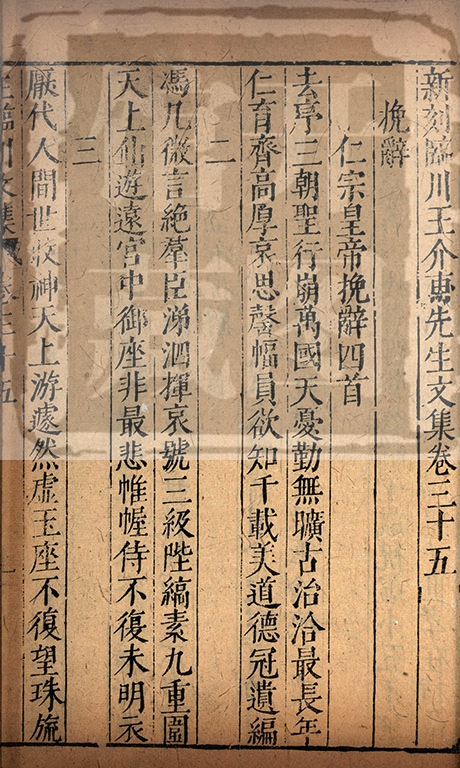 新刻臨川王介甫先生文集卷三十五
挽辭
仁宗皇帝挽辭四首
去序三朝聖行崩萬國天憂勤無曠古治洽最長年
仁育齊高厚哀思罄幅員欲知千載美道德冠遺編
二
馮几微言絶羣臣涕泗揮哀號三級陛縞素九重圍
天上仙遊遠宮中御座非最悲帷幄侍不復未明衣
三
厭代人間世收神天上游遽然虚玉座不復望珠旒
王臨川文集 卷三十五